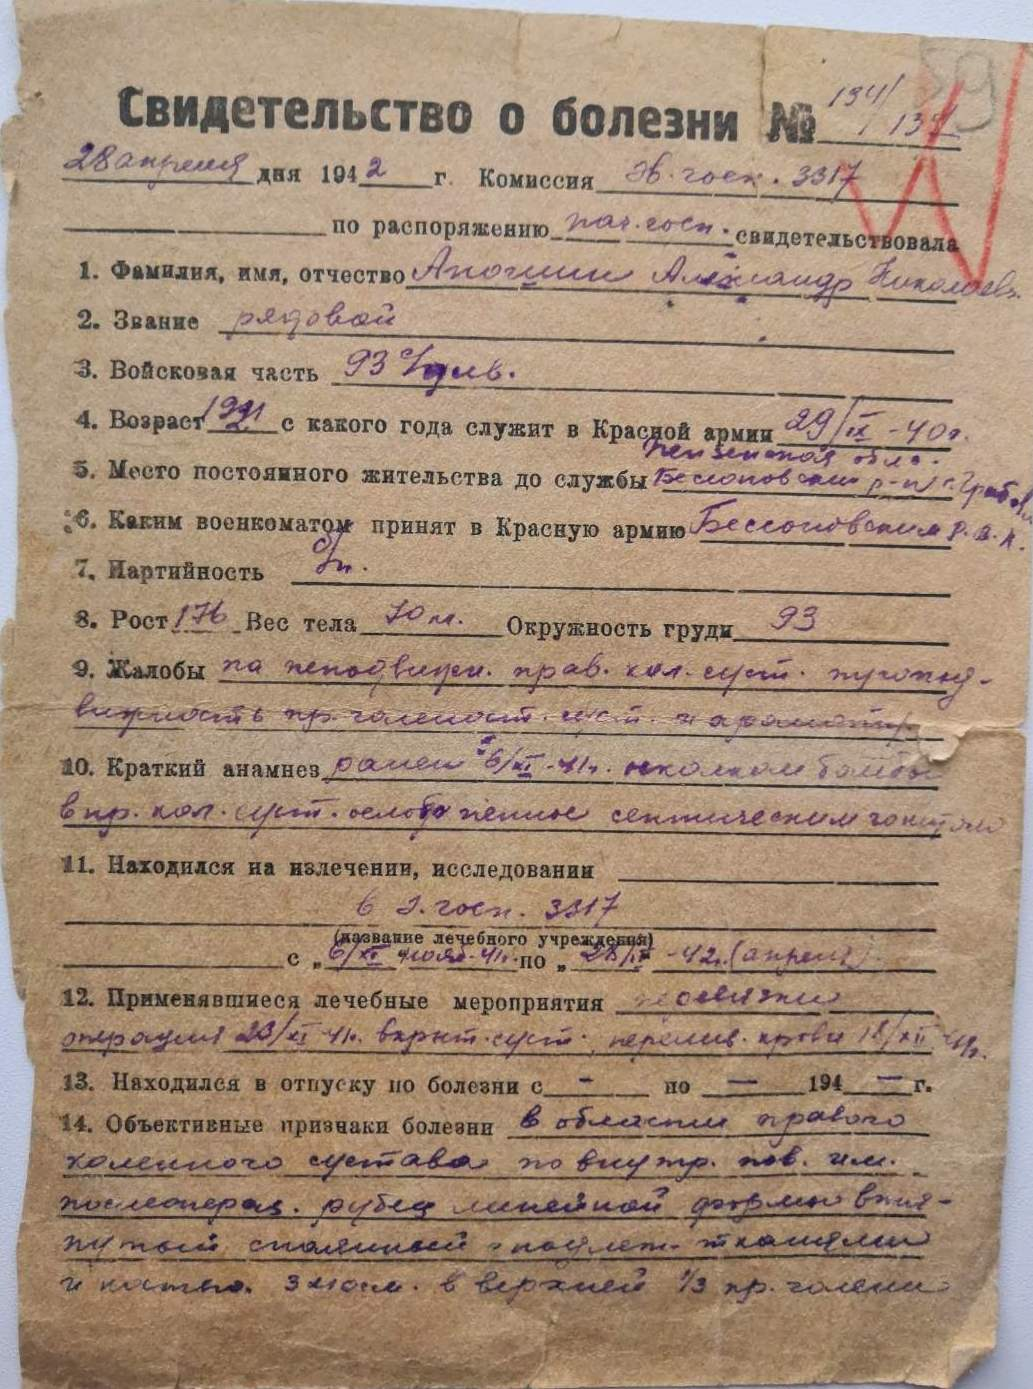 59
Свидетельство о болезни № 134/134
28 апреля дня 1942 г. Комиссия Эв. госп. 3317
по распоряжению нач. госп. свидетельствовала
1. Фамилия, имя, отчество Апогшин Александр Николаев.
2. Звание рядовой
3. Войсковая часть 93
4. Возраст 1921 с какого года служит в Красной армии 29/IX-40г.
Пензенская обл.
5. Место постоянного жительства до службы Бессоновский р-н
6. Каким военкоматом принят в Красную армию Бессоновским Р.В.К.
7. Партийность б/п.
8. Рост 176 Вес тела 70 Окружность груди 93
9. Жалобы на неподвижн. прав. кол. суст. тугопод-
вижность пр. голеност. суст. и
10. Краткий анамнез ранен 6/XI-41г. осколком бомбы
в пр. кол. суст. осложненное септическим гонитом
11. Находился на излечении, исследовании
в Э. госп. 3317
(название лечебного учреждения)
с „6/XI нояб-41г. по „28/IV-42г. (апреля)
12. Применявшиеся лечебные мероприятия перевязки
операция 23/XI-41г. вскрыт. суст. перелив. крови 18/XII-41г.
13. Находился в отпуску по болезни с - по — 194 — г.
14. Объективные признаки болезни в области правого
коленного сустава по внутр. пов. им.
послеоперац. рубец линейной формы втя-
нутый спаянный с подлеж. тканями
и костью. в верхней 1/3 пр. голени